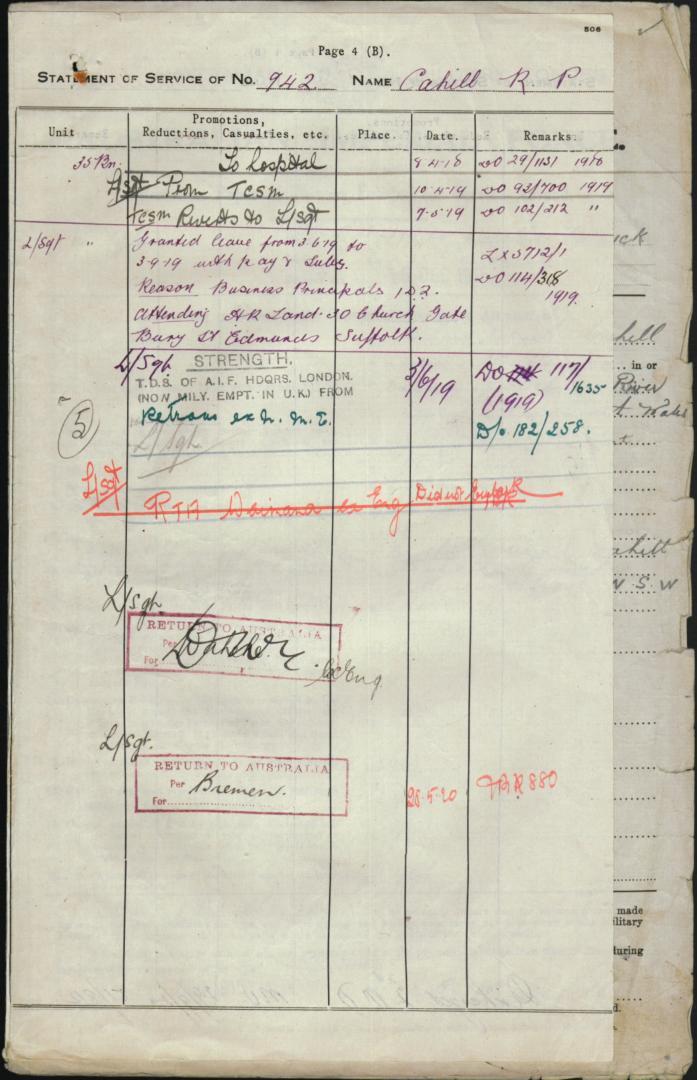 506
Page 4 (B).
STATEMENT OF SERVICE OF No. 942 NAME Cahill R. P.
Unit Promotions, Reductions, Casualties, etc. Place. Date. Remarks.
35 Bn. To hospital 8-4-18 DO 29/1131 1918
L/Sgt Prom TCSM 10-4-19 DO 92/700 1919
TCSM Reverts to L/Sgt 7-5-19 DO 102/212 "
L/Sgt " Granted leave from 3.6.19 to
3.9.19 with pay & Subs. LX 5712/1
Reason Business Principals DO 114/318
Attending A R Land. 30 Church Gate 1919.
Bury St Edmunds Suffolk.
L/Sgt STRENGTH. 3/6/19 DO 117/1635
T.D.S. OF A.I.F. HDQRS. LONDON. (1919)
(NOW MILY. EMPT. IN U.K.) FROM
Retrans ex N. M. E. D/o 182/258.
5
L/Sgt
L/Sgt RTA ex Eng Did not Embark
L/Sgt.
RETURN TO AUSTRALIA
Per
For
ex Eng
L/Sgt.
RETURN TO AUSTRALIA
Per Bremen. 28.5.20 880
For
in or
River
N S W
made
ilitary
during
d.